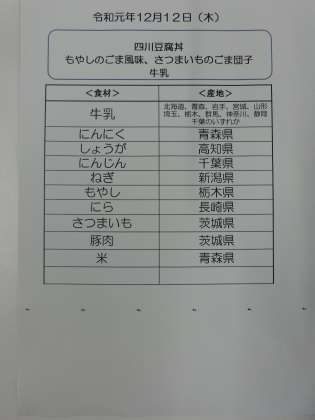 令和元年１２月１２日（木）
四川豆腐丼
もやしのごま風味、さつまいものごま団子
牛乳
＜食材＞ ＜産地＞
牛乳 北海道、青森、岩手、宮城、山形
埼玉、栃木、群馬、神奈川、静岡
千葉のいずれか
にんにく 青森県
しょうが 高知県
にんじん 千葉県
ねぎ 新潟県
もやし 栃木県
にら 長崎県
さつまいも 茨城県
豚肉 茨城県
米 青森県